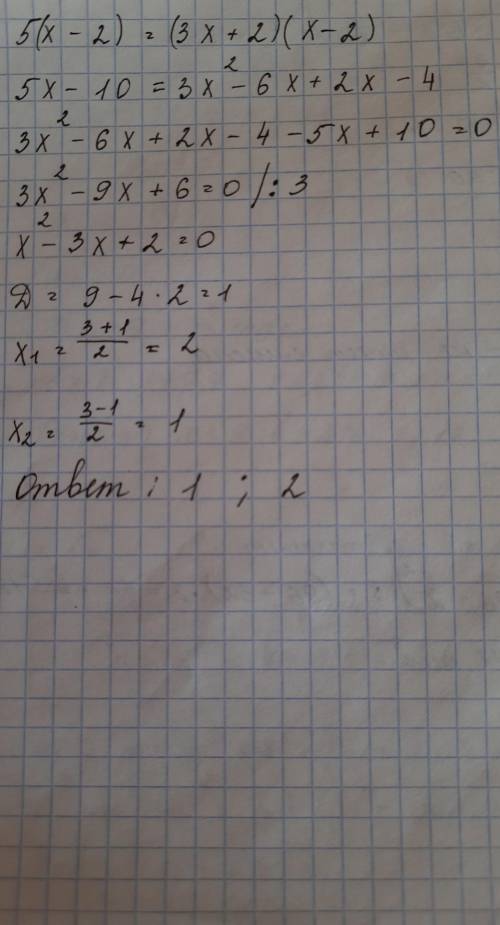 5(x - 2) = (3x + 2)(x - 2)
5x - 10 = 3x² - 6x + 2x - 4
3x² - 6x + 2x - 4 - 5x + 10 = 0
3x² - 9x + 6 = 0 /: 3
x² - 3x + 2 = 0
D = 9 - 4 · 2 = 1
x₁ = (3 + 1)/2 = 2
x₂ = (3 - 1)/2 = 1
Ответ : 1 ; 2